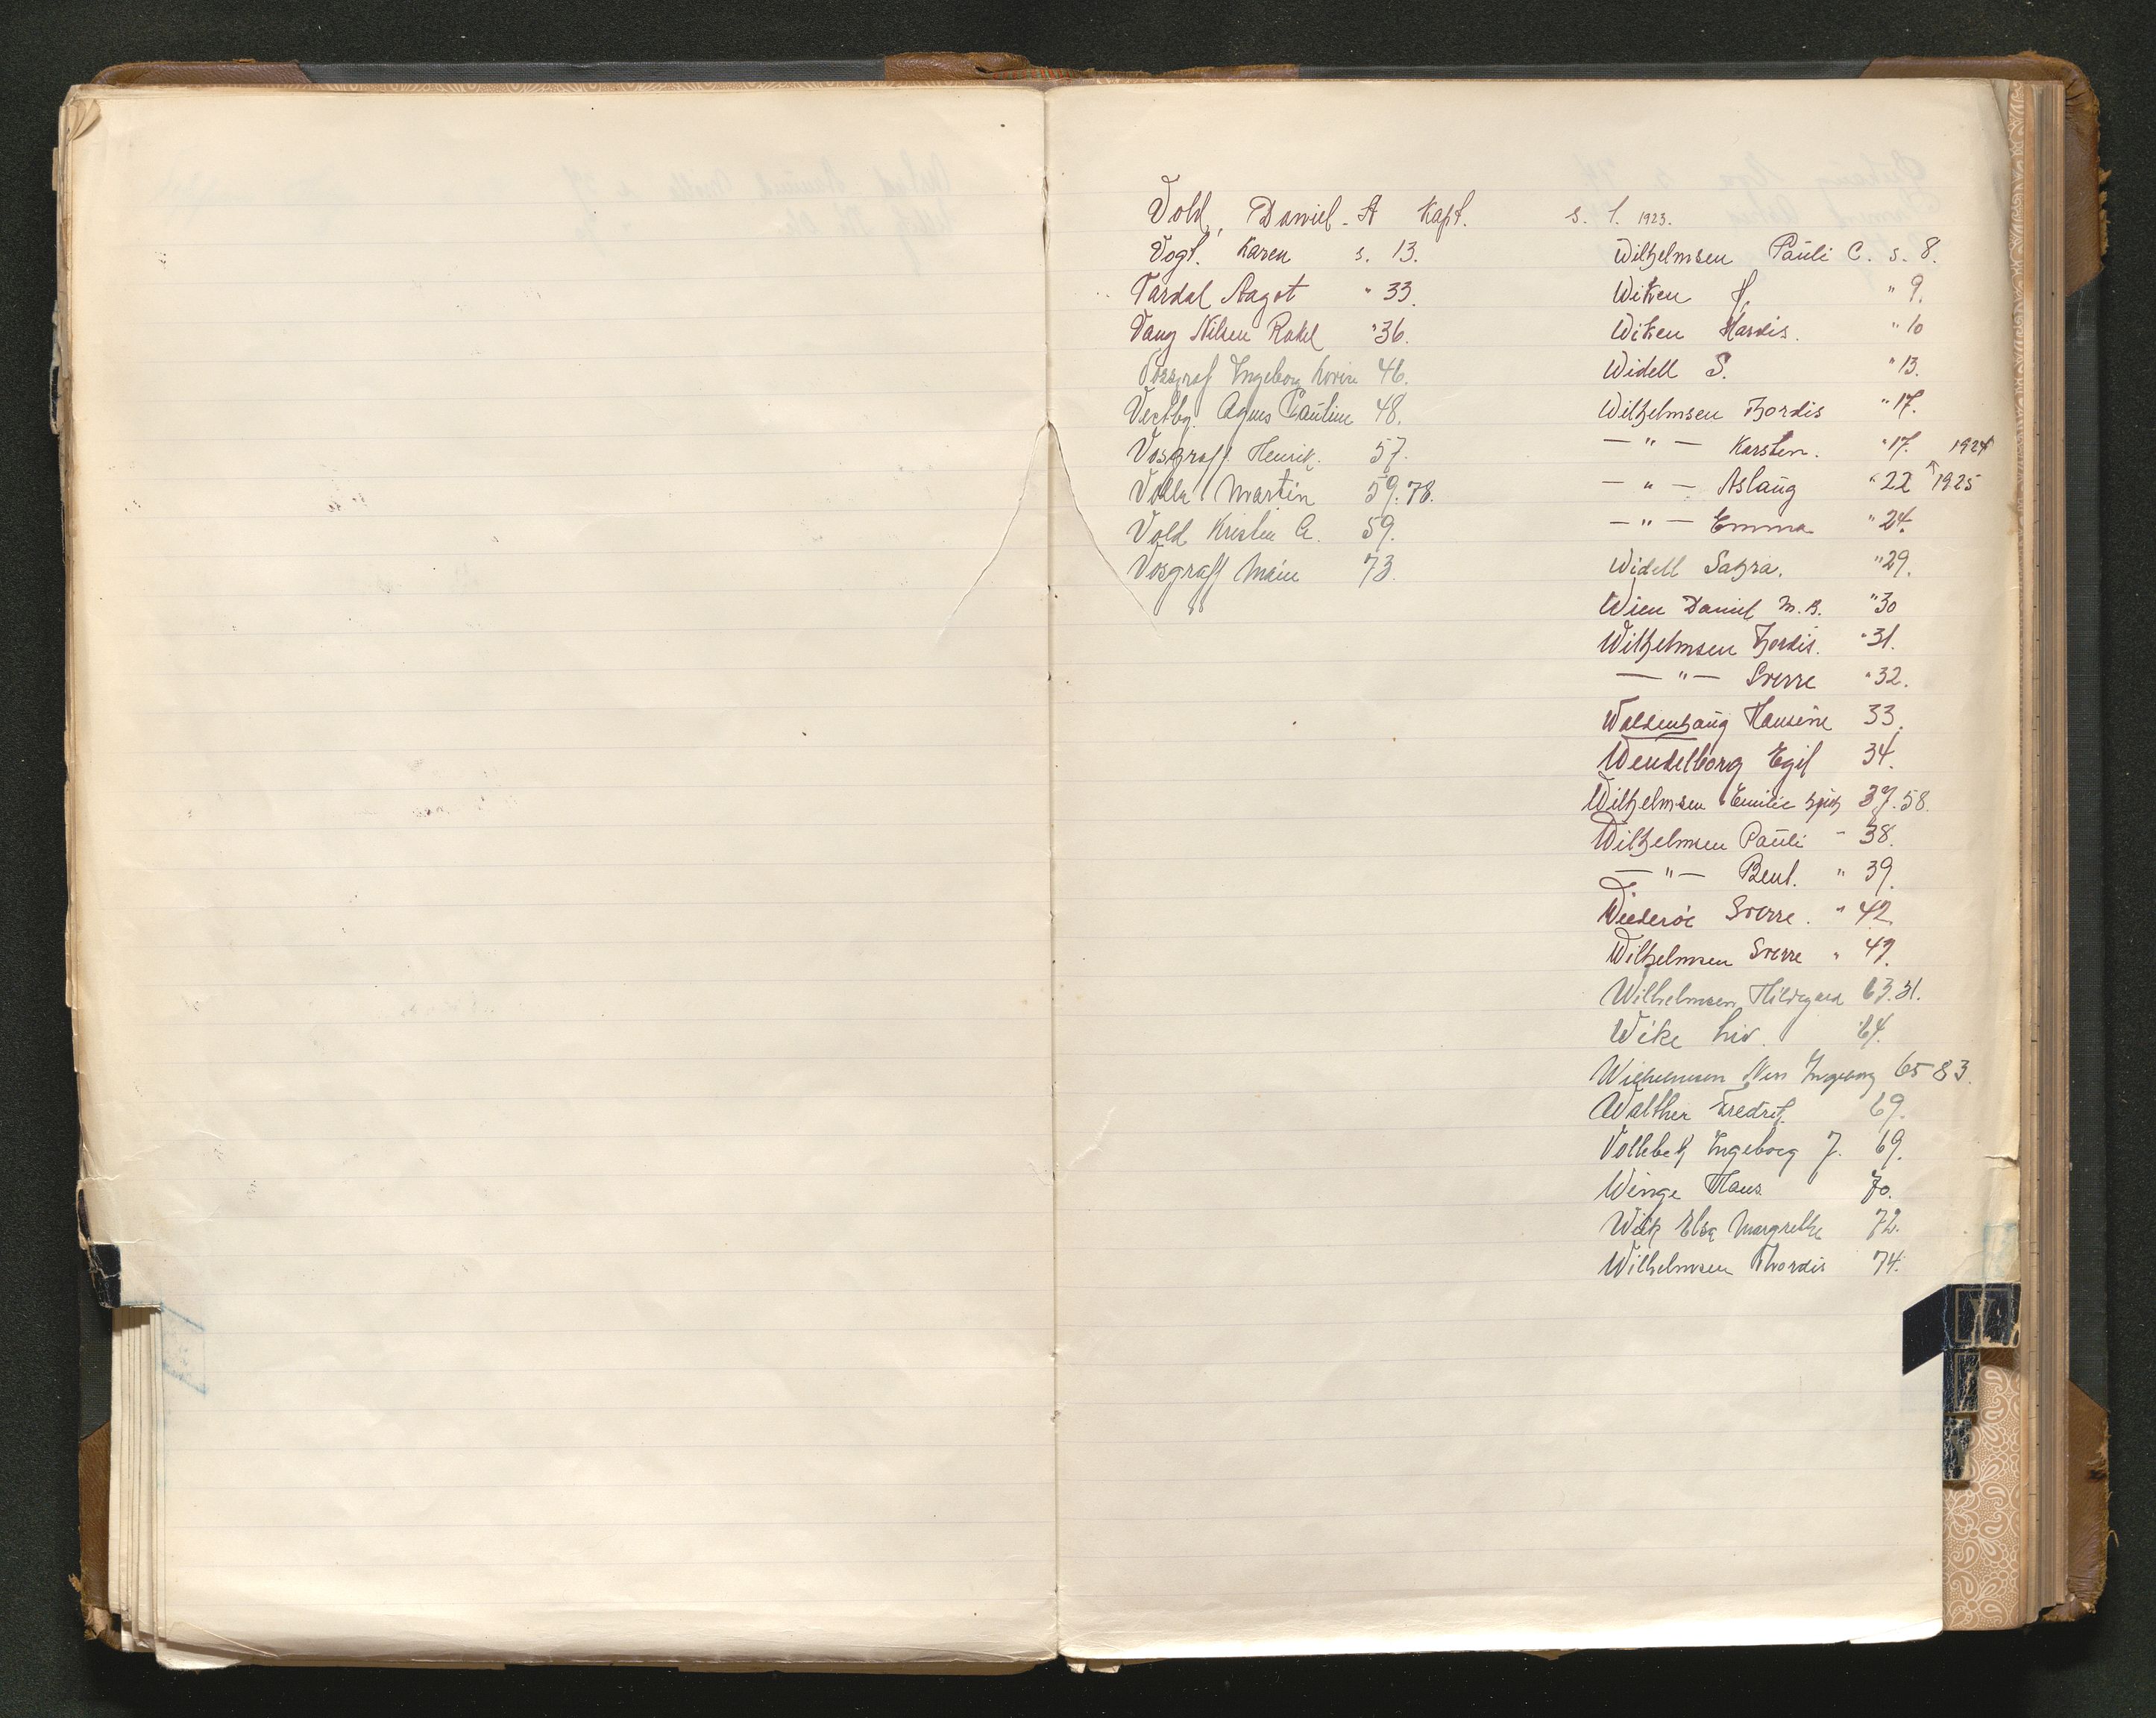 Vold, Daniel A Kapt. s. 1. 1923.
Vogt. Karen s. 13.
Vardal Aagot " 33.
Vang Nilsen Rakel " 36.
Vossgraf Ingeborg 46.
Vestby Agnes Pauline 48.
Vosgraff Henrik. 57.
Volla Martin 59. 78.
Vold Kristen A. 59.
Vosgraff 73.
Wilhelmsen Pauli C. s. 8.
Witsen J. " 9.
Witsen Hardis. " 10
Widell S. " 13.
Wilhelmsen Thordis " 17.
— " — Karsten. " 17. 1924
— " — Aslaug " 22 1925
— " — Emma " 24.
Widell Sagra. " 29.
Wien Daniel M. B. " 30
Wilhelmsen Thordis. " 31.
— " — Sverre " 32.
Waldenhaug Hansine 33.
Wendelborg Egil 34.
Wilhelmsen Emilie 37. 58.
Wilhelmsen Pauli " 38.
— " — Bent. " 39.
Wiederöe Sverre. " 42
Wilhelmsen Sverre "
Wilhelmsen Hildegard 63.
Wike Liv. 64.
Wilhelmsen Ingeborg 65 83.
Walther Fredrik 69.
Vollebek Ingeborg J. 69.
Winge Hans 70.
Wiik Elsa Margrethe 72.
Wilhelmsen Thordis 74.
V